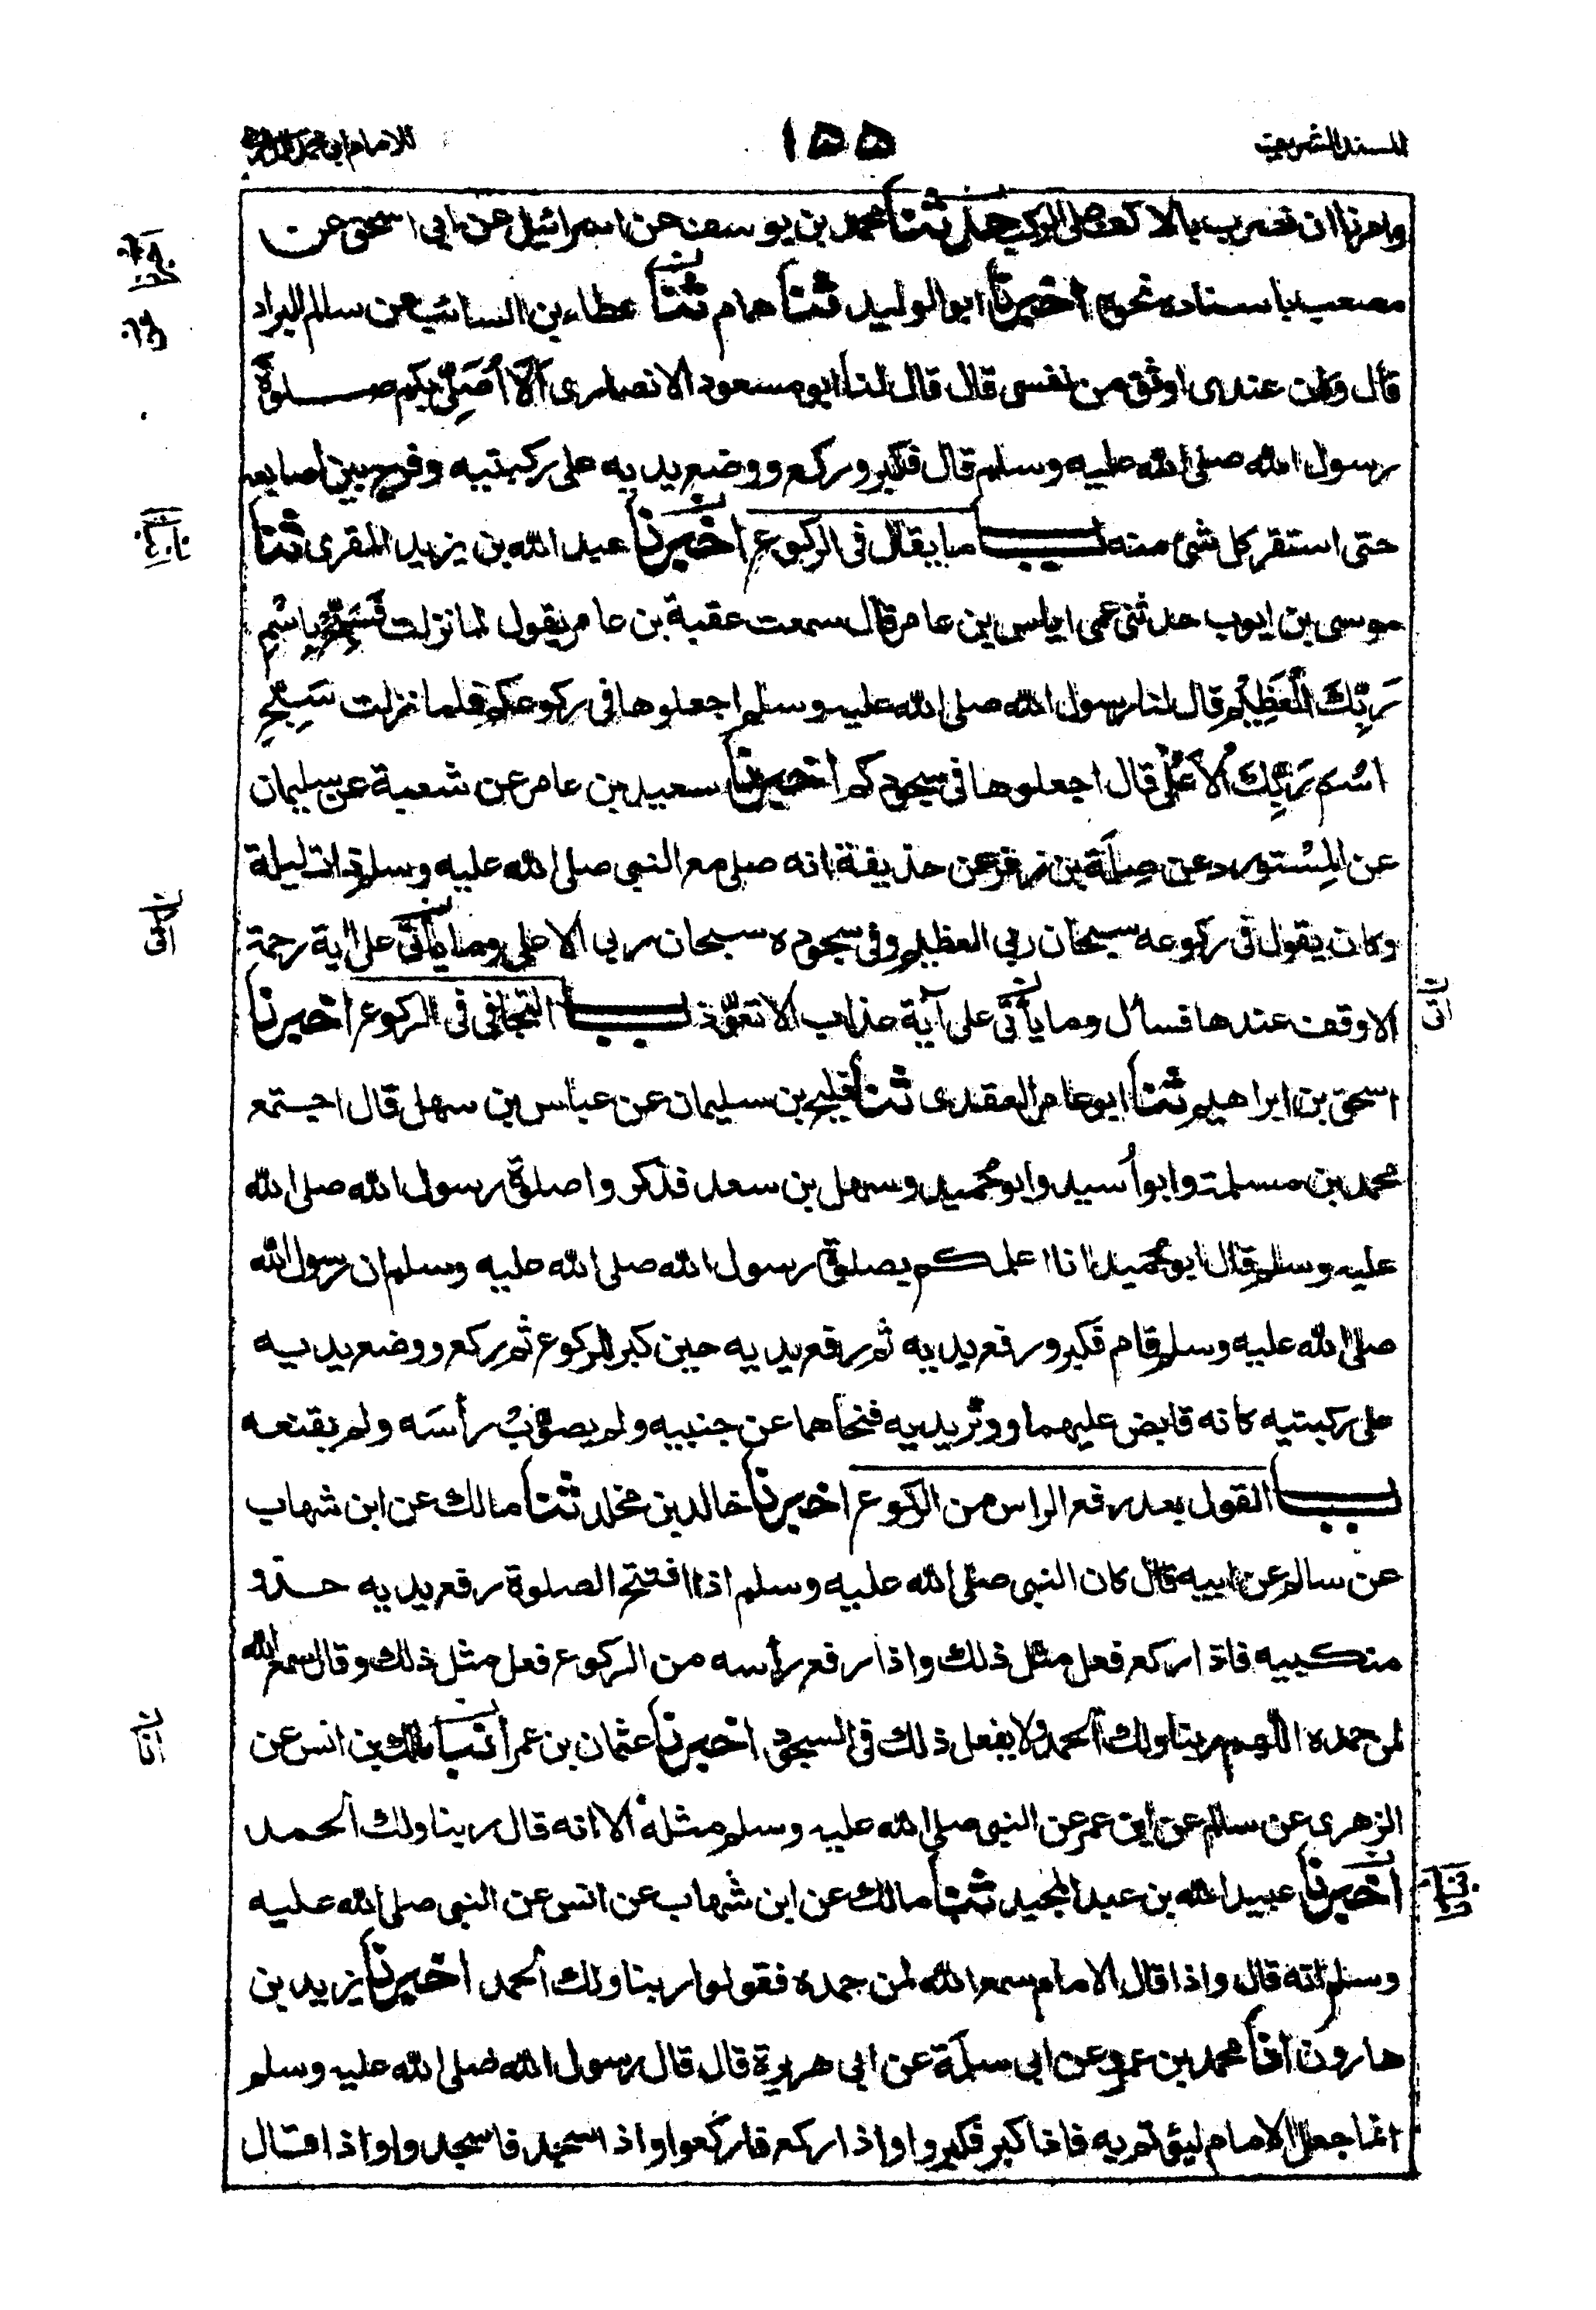 المسند الشريف
١٥٥
للامام ابي محمد الدارمي
وامرنا ان نضرب بالاكف على الركب حدثنا محمد بن يوسف عن اسرائيل عن ابي اسحق عن
مصعب باسناده نحوه اخبرنا ابو الوليد ثنا همام ثنا عطاء بن السائب عن سالم البراد
قال وكان عندى اوثق من نفسى قال قال لنا ابو مسعود الانصارى اَلَا اُصَلِّى بكم صلوة
رسول الله صلى الله عليه وسلم قال فكبر وركع ووضع يديه على ركبتيه وفرج بين اصابعه
حتى استقر كل شئ منه باب ما يقال فى الركوع اخبرنا عبد الله بن يزيد المقرى ثنا
موسى بن ايوب حدثنى عمى اياس بن عامر قال سمعت عقبة بن عامر يقول لما نزلت فَسَبِّحْ بِاسْمِ
رَبِّكَ الْعَظِيْمِ قال لنا رسول الله صلى الله عليه وسلم اجعلوها فى ركوعكم فلما نزلت سَبِّحِ
اسْمَ رَبِّكَ الْاَعْلٰى قال اجعلوها فى سجودكم اخبرنا سعيد بن عامر عن شعبة عن سليمان
عن المُسْتورد عن صِلَة بن زفر عن حذيفة انه صلى مع النبى صلى الله عليه وسلم ذات ليلة
وكان يقول فى ركوعه سبحان ربى العظيم وفى سجوده سبحان ربى الاعلى وما يأتى على اية رحمة
الا وقف عندها فسأل وما يأتى على آية عذاب الا تعوّذ باب التجافى فى الركوع اخبرنا
اسحق بن ابراهيم ثنا ابو عامر العقدى ثنا فليح بن سليمان عن عباس بن سهل قال اجتمع
محمد بن مسلمة وابو اُسيد وابو حُميد وسهل بن سعد فذكروا صلوة رسول الله صلى الله
عليه وسلم قال ابو حُميد انا اعلمكم بصلوة رسول الله صلى الله عليه وسلم ان رسول الله
صلى الله عليه وسلم قام فكبر ورفع يديه ثم رفع يديه حين كبر للركوع ثم ركع ووضع يديه
على ركبتيه كانه قابض عليهما ووتّر يديه فنحاهما عن جنبيه ولم يصوّبْ رأسَه ولم يقنعه
باب القول بعد رفع الراس من الركوع اخبرنا خالد بن مخلد ثنا مالك عن ابن شهاب
عن سالم عن ابيه قال كان النبى صلى الله عليه وسلم اذا افتتح الصلوة رفع يديه حذو
منكبيه فاذا ركع فعل مثل ذلك واذا رفع رأسه من الركوع فعل مثل ذلك وقال سمع الله
لمن حمده اللهم ربنا ولك الحمد ولا يفعل ذلك فى السجود اخبرنا عثمان بن عمر انبا مالك بن انس عن
الزهرى عن سالم عن ابن عمر عن النبى صلى الله عليه وسلم مثله الا انه قال ربنا ولك الحمد
اخبرنا عبيد الله بن عبد المجيد ثنا مالك عن ابن شهاب عن انس عن النبى صلى الله عليه
وسلم انه قال واذا قال الامام سمع الله لمن حمده فقولوا ربنا ولك الحمد اخبرنا يزيد بن
هارون انا محمد بن عمرو عن ابى سلمة عن ابى هريرة قال قال رسول الله صلى الله عليه وسلم
انما جعل الامام ليؤتم به فاذا كبر فكبروا واذا ركع فاركعوا واذا سجد فاسجدوا واذا قال
اتى
اتى
انا